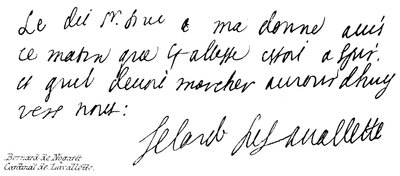 Le dit Sr. Duc a ma donne auis
ce matin que S altesse estoi a
et quel deuoit marcher auiourdhuy
vers nous:
Le Card de Lauallette
Bernard de Nogaret
Cardinal de Lavallette.